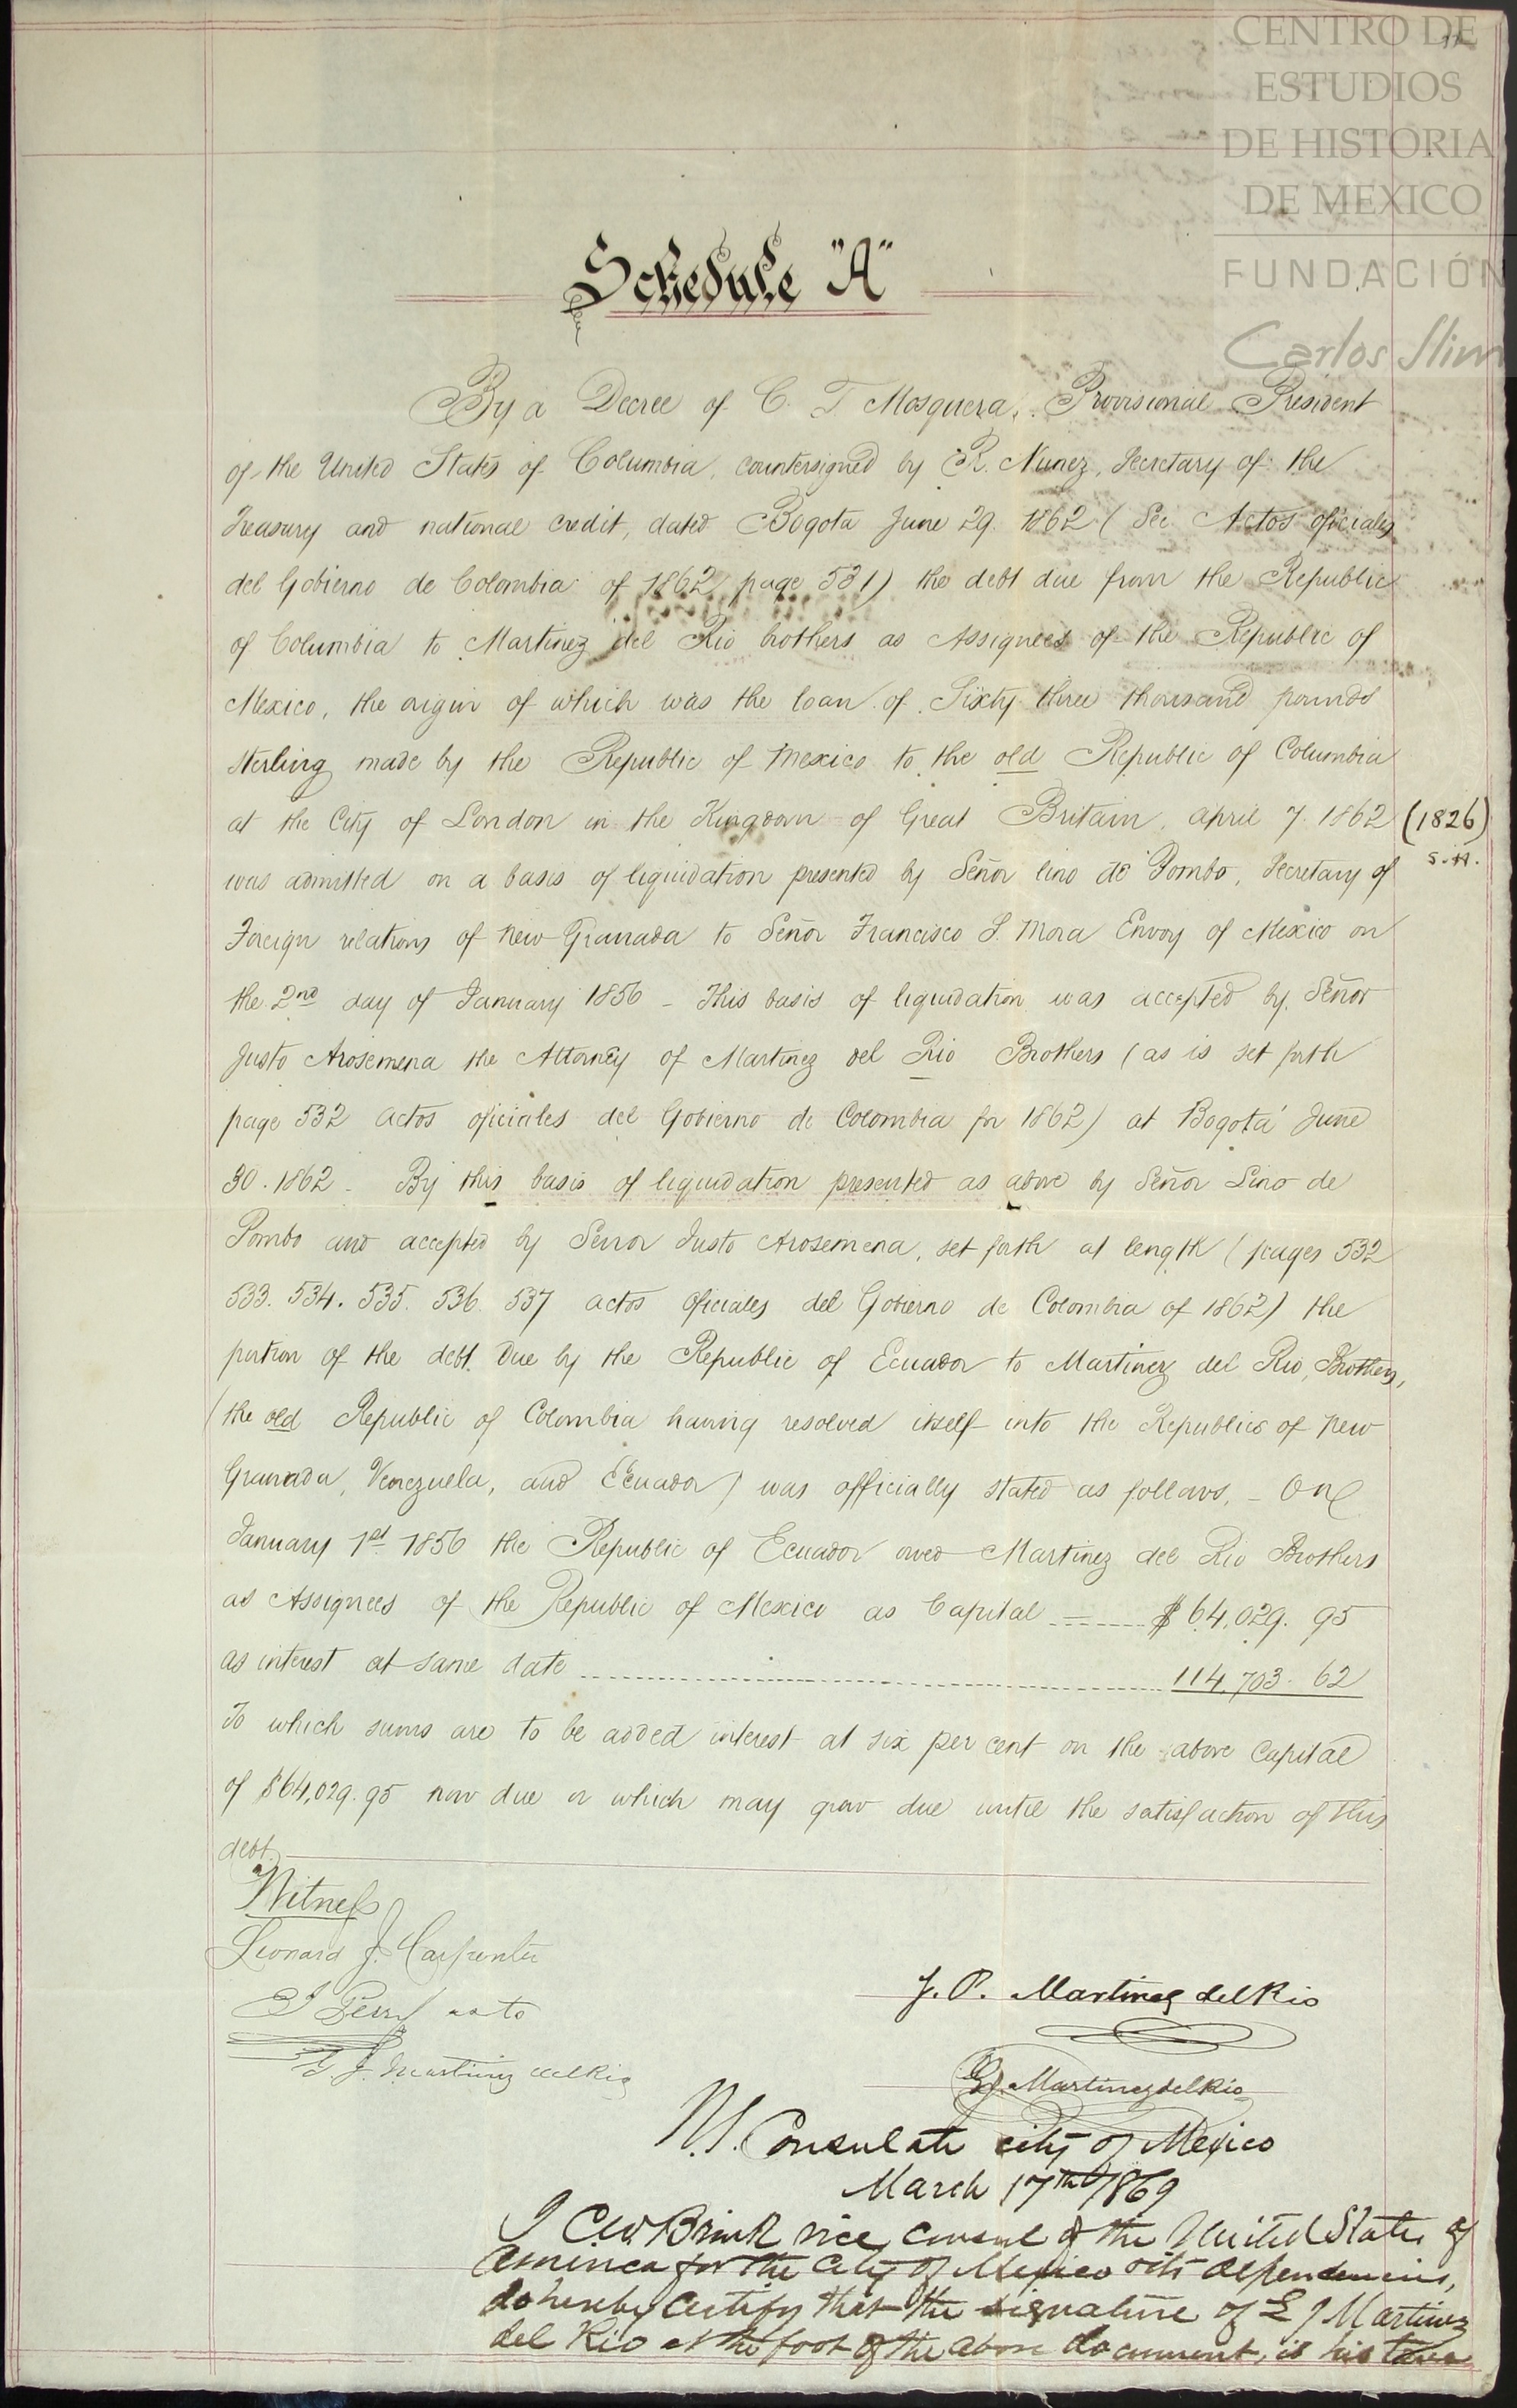 CENTRO DE
ESTUDIOS
DE HISTORIA
DE MEXICO
FUNDACIÓN
Carlos Slim
Schedule "A"
By a Decree of C. T Mosquera, Provisional President
of the United States of Columbia, countersigned by R. Nunez, Secretary of the
Treasury and national credit, dated Bogota June 29. 1862 (See Actos oficiales
del Gobierno de Colombia of 1862 page 531) the debt due from the Republic
of Columbia to Martinez del Rio brothers as Assignees of the Republic of
Mexico, the origin of which was the loan of Sixty three thousand pounds
sterling made by the Republic of Mexico to the old Republic of Columbia
at the City of London in the Kingdom of Great Britain, april 7. 1862 (1826)
S.H.
was admitted on a basis of liquidation presented by Señor lino de Pombo, Secretary of
Foreign relations of New Granada to Señor Francisco S. Mora Envoy of Mexico on
the 2nd day of January 1856 _ This basis of liquidation was accepted by Señor
Justo Arosemena the Attorney of Martinez del Rio Brothers (as is set forth
page 532 actos oficiales del Gobierno de Colombia for 1862) at Bogotá June
30. 1862 _ By this basis of liquidation presented as above by Señor Lino de
Pombo and accepted by Senor Justo Arosemena, set forth at length (pages 532
533. 534. 535. 536. 537 actos oficiales del Gobierno de Colombia of 1862) the
portion of the debt due by the Republic of Ecuador to Martinez del Rio, Brothers,
(the old Republic of Colombia having resolved itself into the Republics of New
Granada, Venezuela, and Ecuador) was officially stated as follows, _ On
January 1st 1856 the Republic of Ecuador owed Martinez del Rio Brothers
as Assignees of the Republic of Mexico as Capital ------ $ 64,029. 95
as interest at same date ------ 114,703. 62
To which sums are to be added interest at six per cent on the above Capital
of $64,029.95 now due or which may grow due until the satisfaction of this
debt.
Witness
Leonard J. Carpenter
as to
J. Martinez del Rio
J. P. Martinez del Rio
J. Martinez del Rio
U.S. Consulate city of Mexico
March 17th 1869
I vice consul of the United States of
America for the City of Mexico & its dependencies,
do hereby certify that the signature of E J Martinez
del Rio at the foot of the above document, is his true